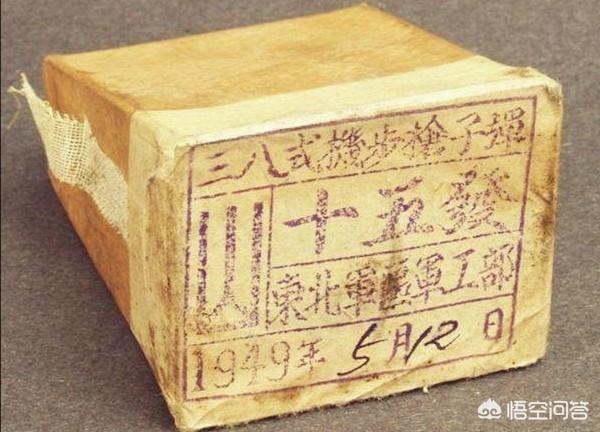 三八式機步槍子彈
十五發
東北軍區軍工部
1949年 5月12日
悟空问答